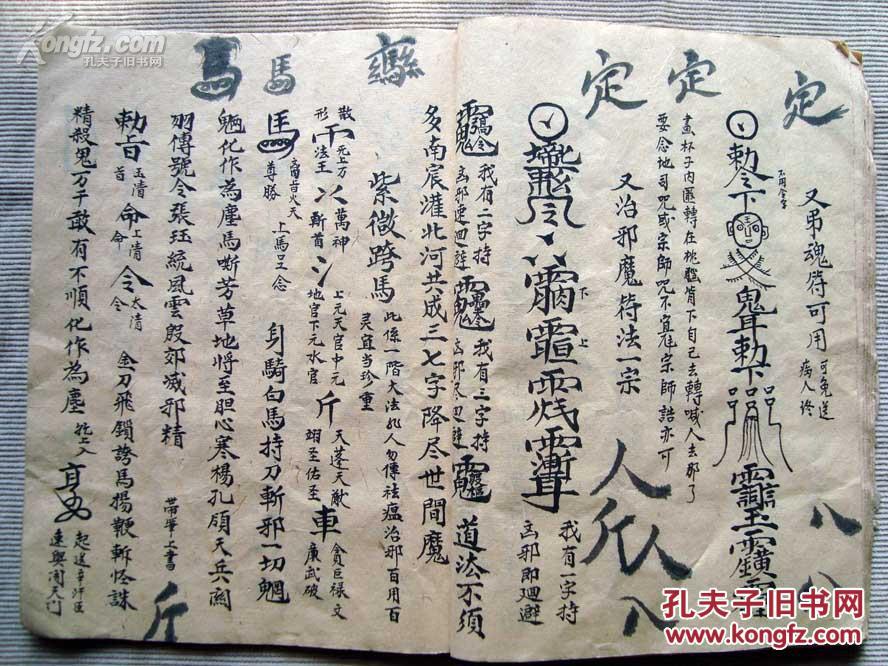 定 定 定
又吊魂符可用
可免送
病人終
勅令下
不用食字
鬼耳勅下
八
八
畫杯子內匡轉在桃
背下自己去轉喊人去那了
要念地司咒或宗師咒不宜
宗師誥亦可
又治邪魔符法一宗
人斤人八
下
上
我有一字持
凶邪即迴避
我有二字持
凶邪速迴避
我有三字持
凶邪尽迴避
道法不須
多南宸灌北河共成三七字降尽世間魔
紫微跨馬
此係一階大法非人勿傳祛瘟治邪百用百
灵宜当珍重
散
形
元上方
法王
萬神
斬首
上元天官中元
地官下元水官
斤
天蓬天猷
翊至佑至
車
貪巨禄文
廉武破
南昌火天
尊勝
上馬
念
身騎白馬持刀斬邪一切魍
魎化作為塵馬嘶芳草地將至胆心寒楊孔領天兵
羽傳號令張珏統風雲殷郊滅邪精
帶筆上書
斤
勅旨
玉清
首
命
上清
命
令
太清
令
金刀飛鎖誇馬揚鞭斬怪誅
精殺鬼万千敢有不順化作為塵
起送
速與
天門
馬
馬
Kongfz.com
孔夫子旧书网
孔夫子旧书网
www.kongfz.com